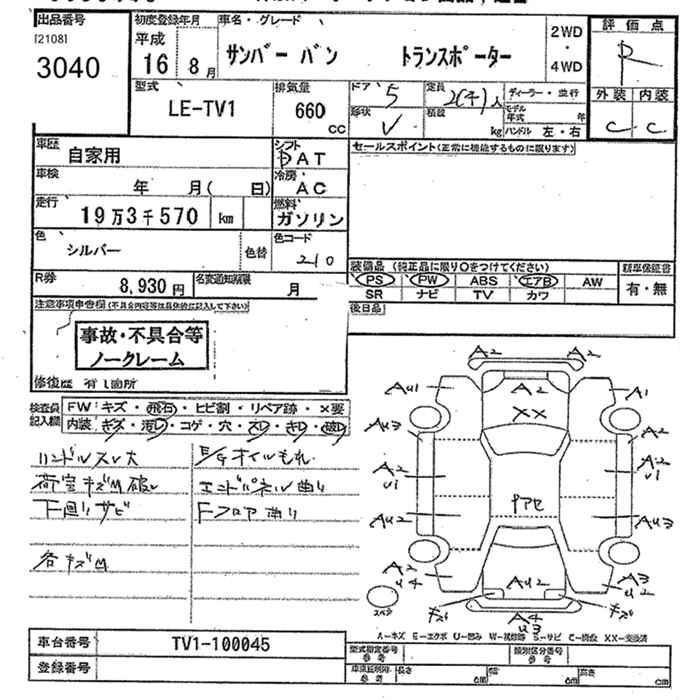 出品番号 初度登録年月 車名・グレード 評価点
[2108] 平成
3040 16年 8月 サンバー バン トランスポーター 2WD・4WD R
型式 排気量 ドア 5 定員 2(4)人 ディーラー・並行 外装 内装
LE-TV1 660 cc 形状 V 積載 kg モデル年式 年 ハンドル 左・右 C C
車歴 自家用 シフト DAT セールスポイント(正常に機能するものに限ります)
車検 年 月( 日) 冷房 AC
走行 19万3千570 km 燃料 ガソリン
色 シルバー 色替 色コード 210
装備品 (純正品に限り○をつけてください) 新車保証書
R券 8,930円 名変通知期限 月 PS PW ABS エアB AW 有・無
SR ナビ TV カワ
注意事項申告欄(不具合内容等は具体的に記入して下さい) 後日品
事故・不具合等
ノークレーム
修復歴 有し箇所
検査員記入欄 FW:キズ・飛石・ヒビ割・リペア跡・×要
内装:キズ・汚レ・コゲ・穴・スレ・キレ・破レ
ハンドルスレ大 E/Gオイルもれ
荷室キズM破レ エンドパネル曲り
下廻りサビ Fフロア曲り
各キズM
A2 A2
AU1 A2 A1
XX
AU3 A2
A2 A2
U1 U1
AU2 AU3
A2 A3
U4 AU2 U2
キズ A4 キズ
U3
スペア
A-キズ E-エクボ U-凹み W-補修跡 S-サビ C-腐蝕 XX-交換済
車台番号 TV1-100045 型式指定番号 参考 類別区分番号 参考
登録番号 車庫証明用 参考 長さ cm 幅 cm 高さ cm